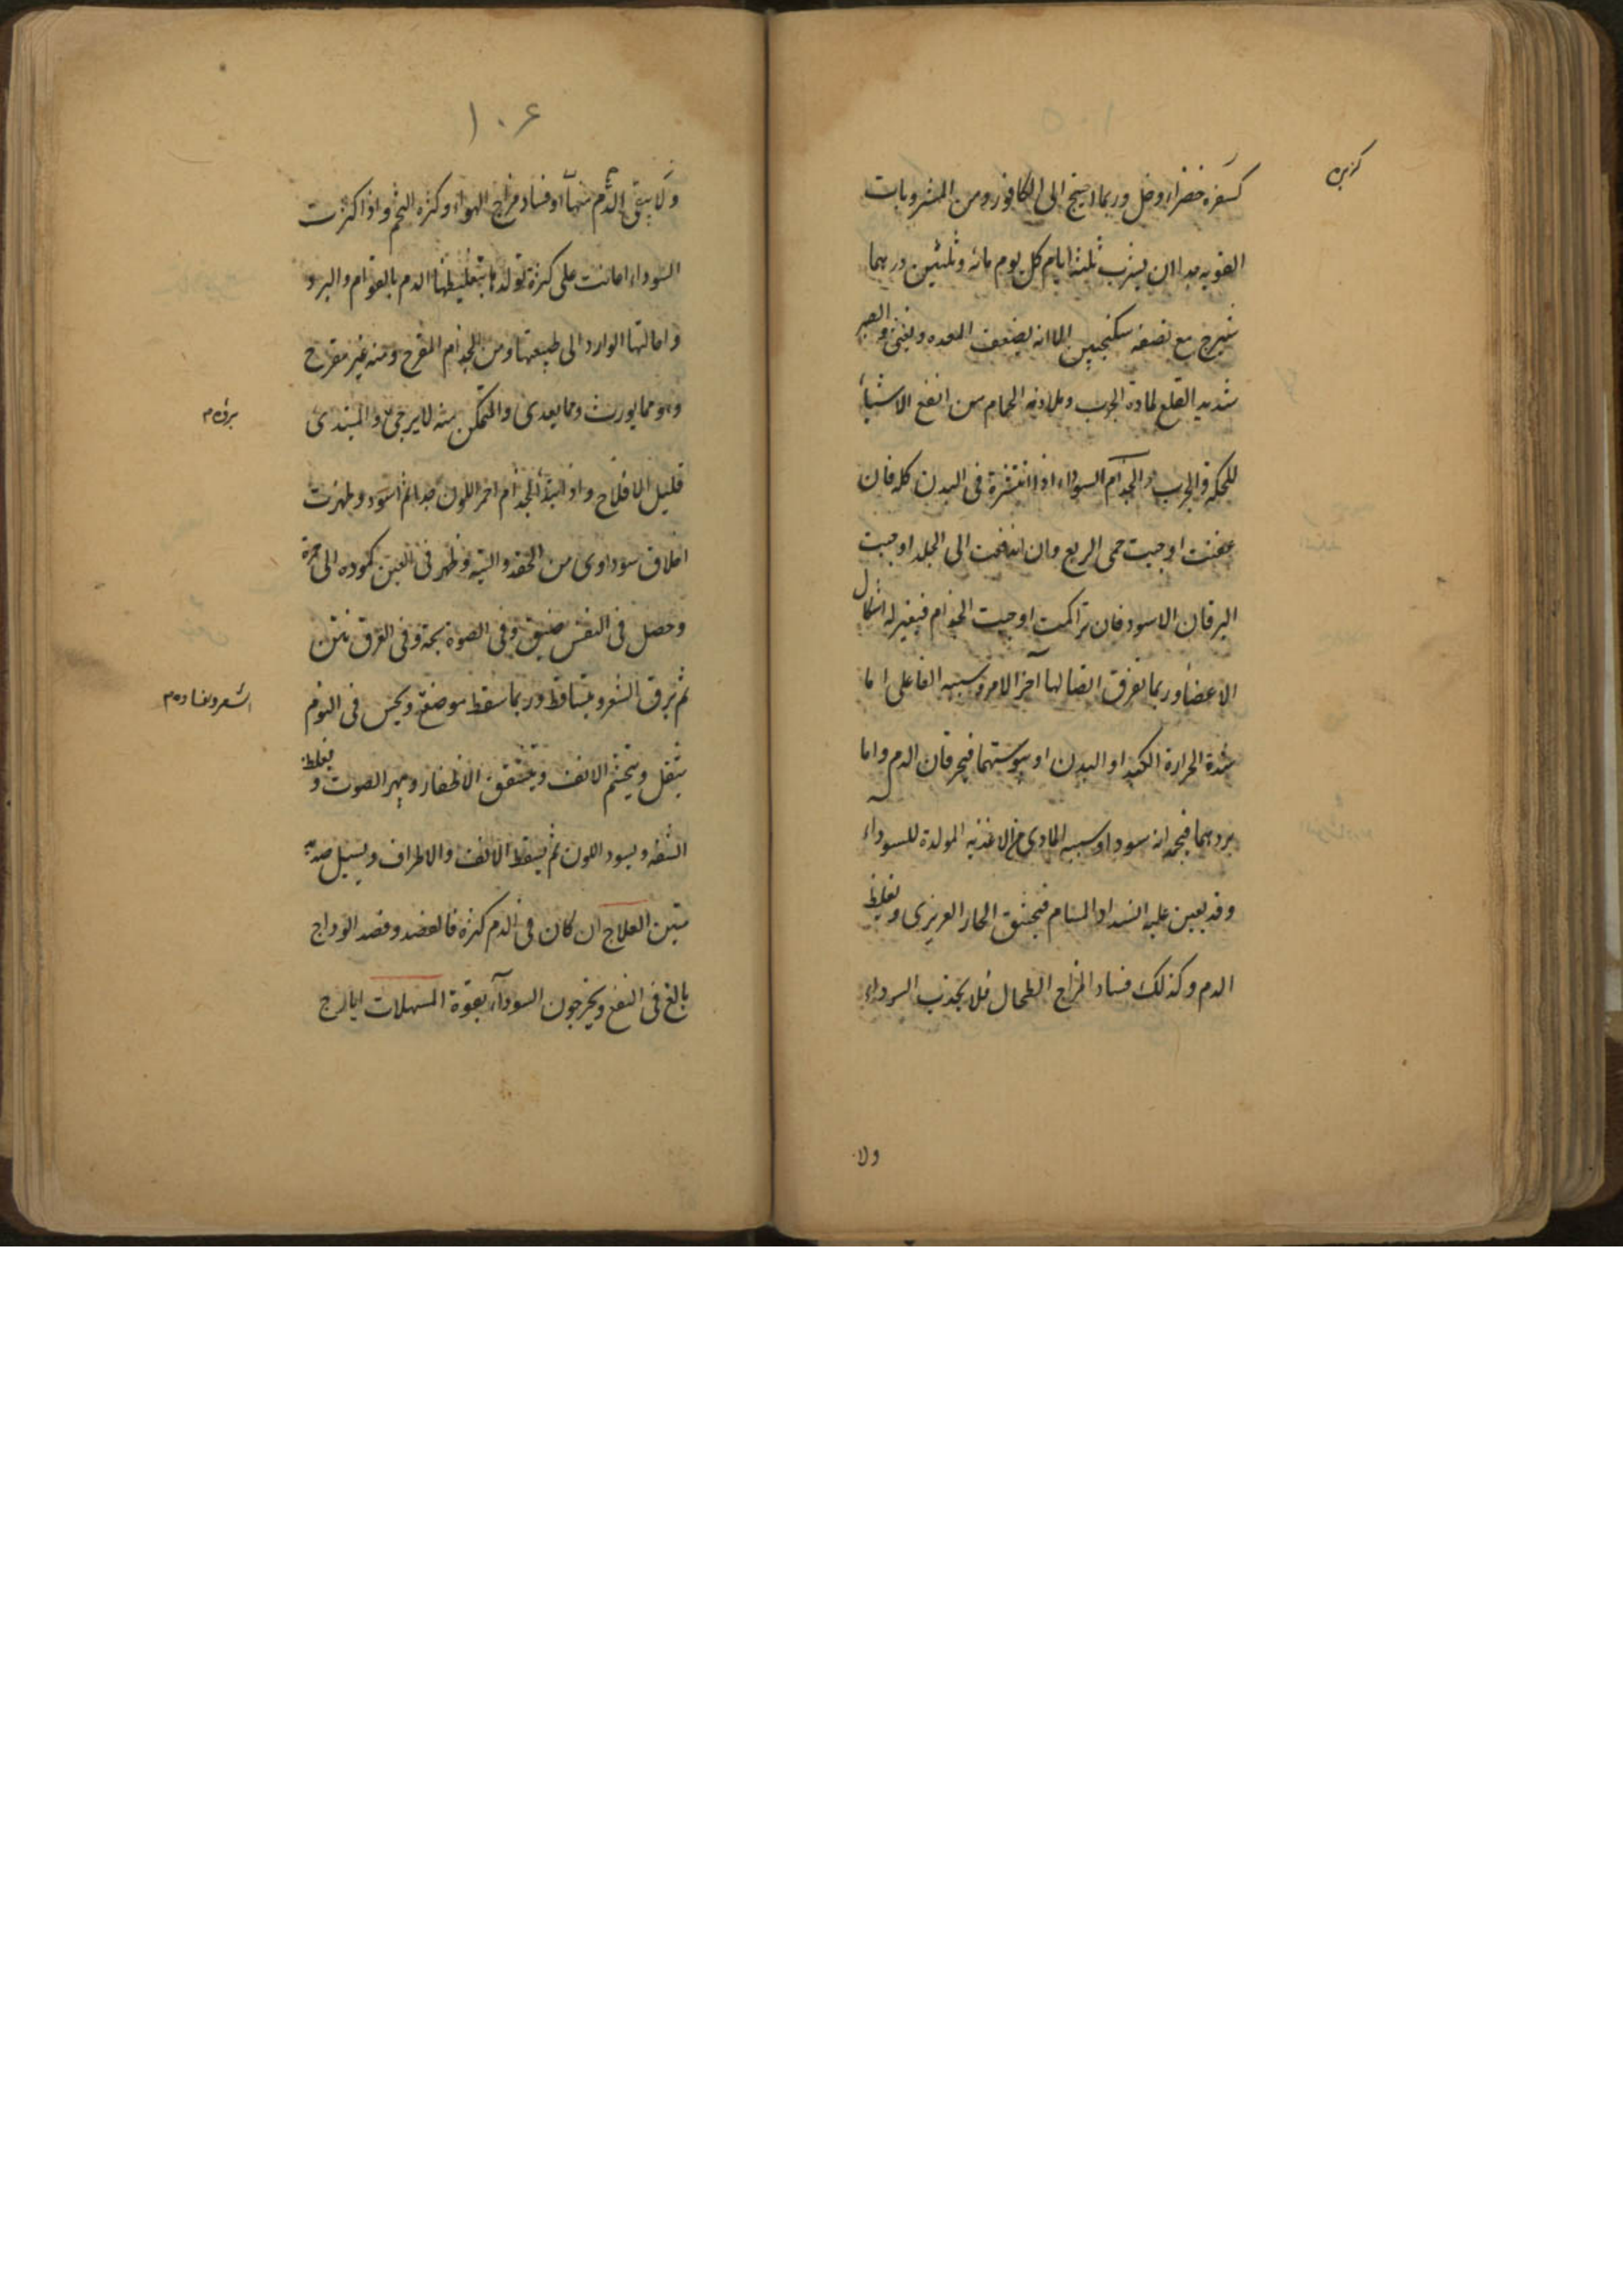 كزبره
كسفره خضراء وخل وربما احتيج الى الكافور ومن المشروبات
القويه جدا ان يشرب ثلثة ايام كل يوم مائه وثلثين درهما
شيرج مع نصفه سكنجبين الا انه يضعف المعده ويغثى والصبر
شديد القلع لمادة الجرب وملازمه الحمام من انفع الاشياء
للحكة والجرب والجذام السوداء اذا انتشرة فى البدن كله فان
عفنت اوجبت حمى الربع وان اندفعت الى الجلد اوجبت
اليرقان الاسود فان تراكمت اوجبت الجذام فيغير له اشكال
الاعضاء وربما تفرق اتصالها آخر الامر وسببه الفاعلى اما
شدة الحرارة الكبد او البدن او يبوستهما فيحرقان الدم واما
بردهما فيجمدانه سوداء وسببه المادى الاغذيه المولدة للسوداء
وقد يعين عليه انسداد المسام فيختنق الحار الغريزى ويغلظ
الدم وكذلك فساد المزاج الطحال فلا يجذب السوداء
ولا
١٠٦
ولا ينقى الدم منها او فساد مزاج الهواء وكثره التخم واذا كثرت
السوداء اعانت على كثرة تولدها بتغليظها الدم بالقوام والبرد
واحالتها الوارد الى طبيعتها ومن الجذام المقرح ومنه غير مقرح
وهو مما يورث ومما يعدى والمتمكن منه لا يرجى والمبتدى
برؤه م
قليل الافلاح واذا ابتدأ الجذام احمر اللون جدا ثم اسود وظهرت
اخلاق سوداوى من الحقد والتيه وظهر فى العين كموده الى حمرة
وحصل فى النفس ضيق وفى الصوة بحة وفى العرق نتن
ثم يرق الشعر ويتساقط وربما سقط موضعه ويحس فى النوم
الشعر ونفاده م
بثقل ويتخشم الانف ويتشقق الاظفار ويبهر الصوت ويغلظ
الشفه ويسود اللون ثم يسقط الانف والاطراف ويسيل صديد
منتن العلاج ان كان فى الدم كثرة فالفصد وفصد الوداج
بالغ فى النفع ويخرجون السوداء بقوة المسهلات ايارج